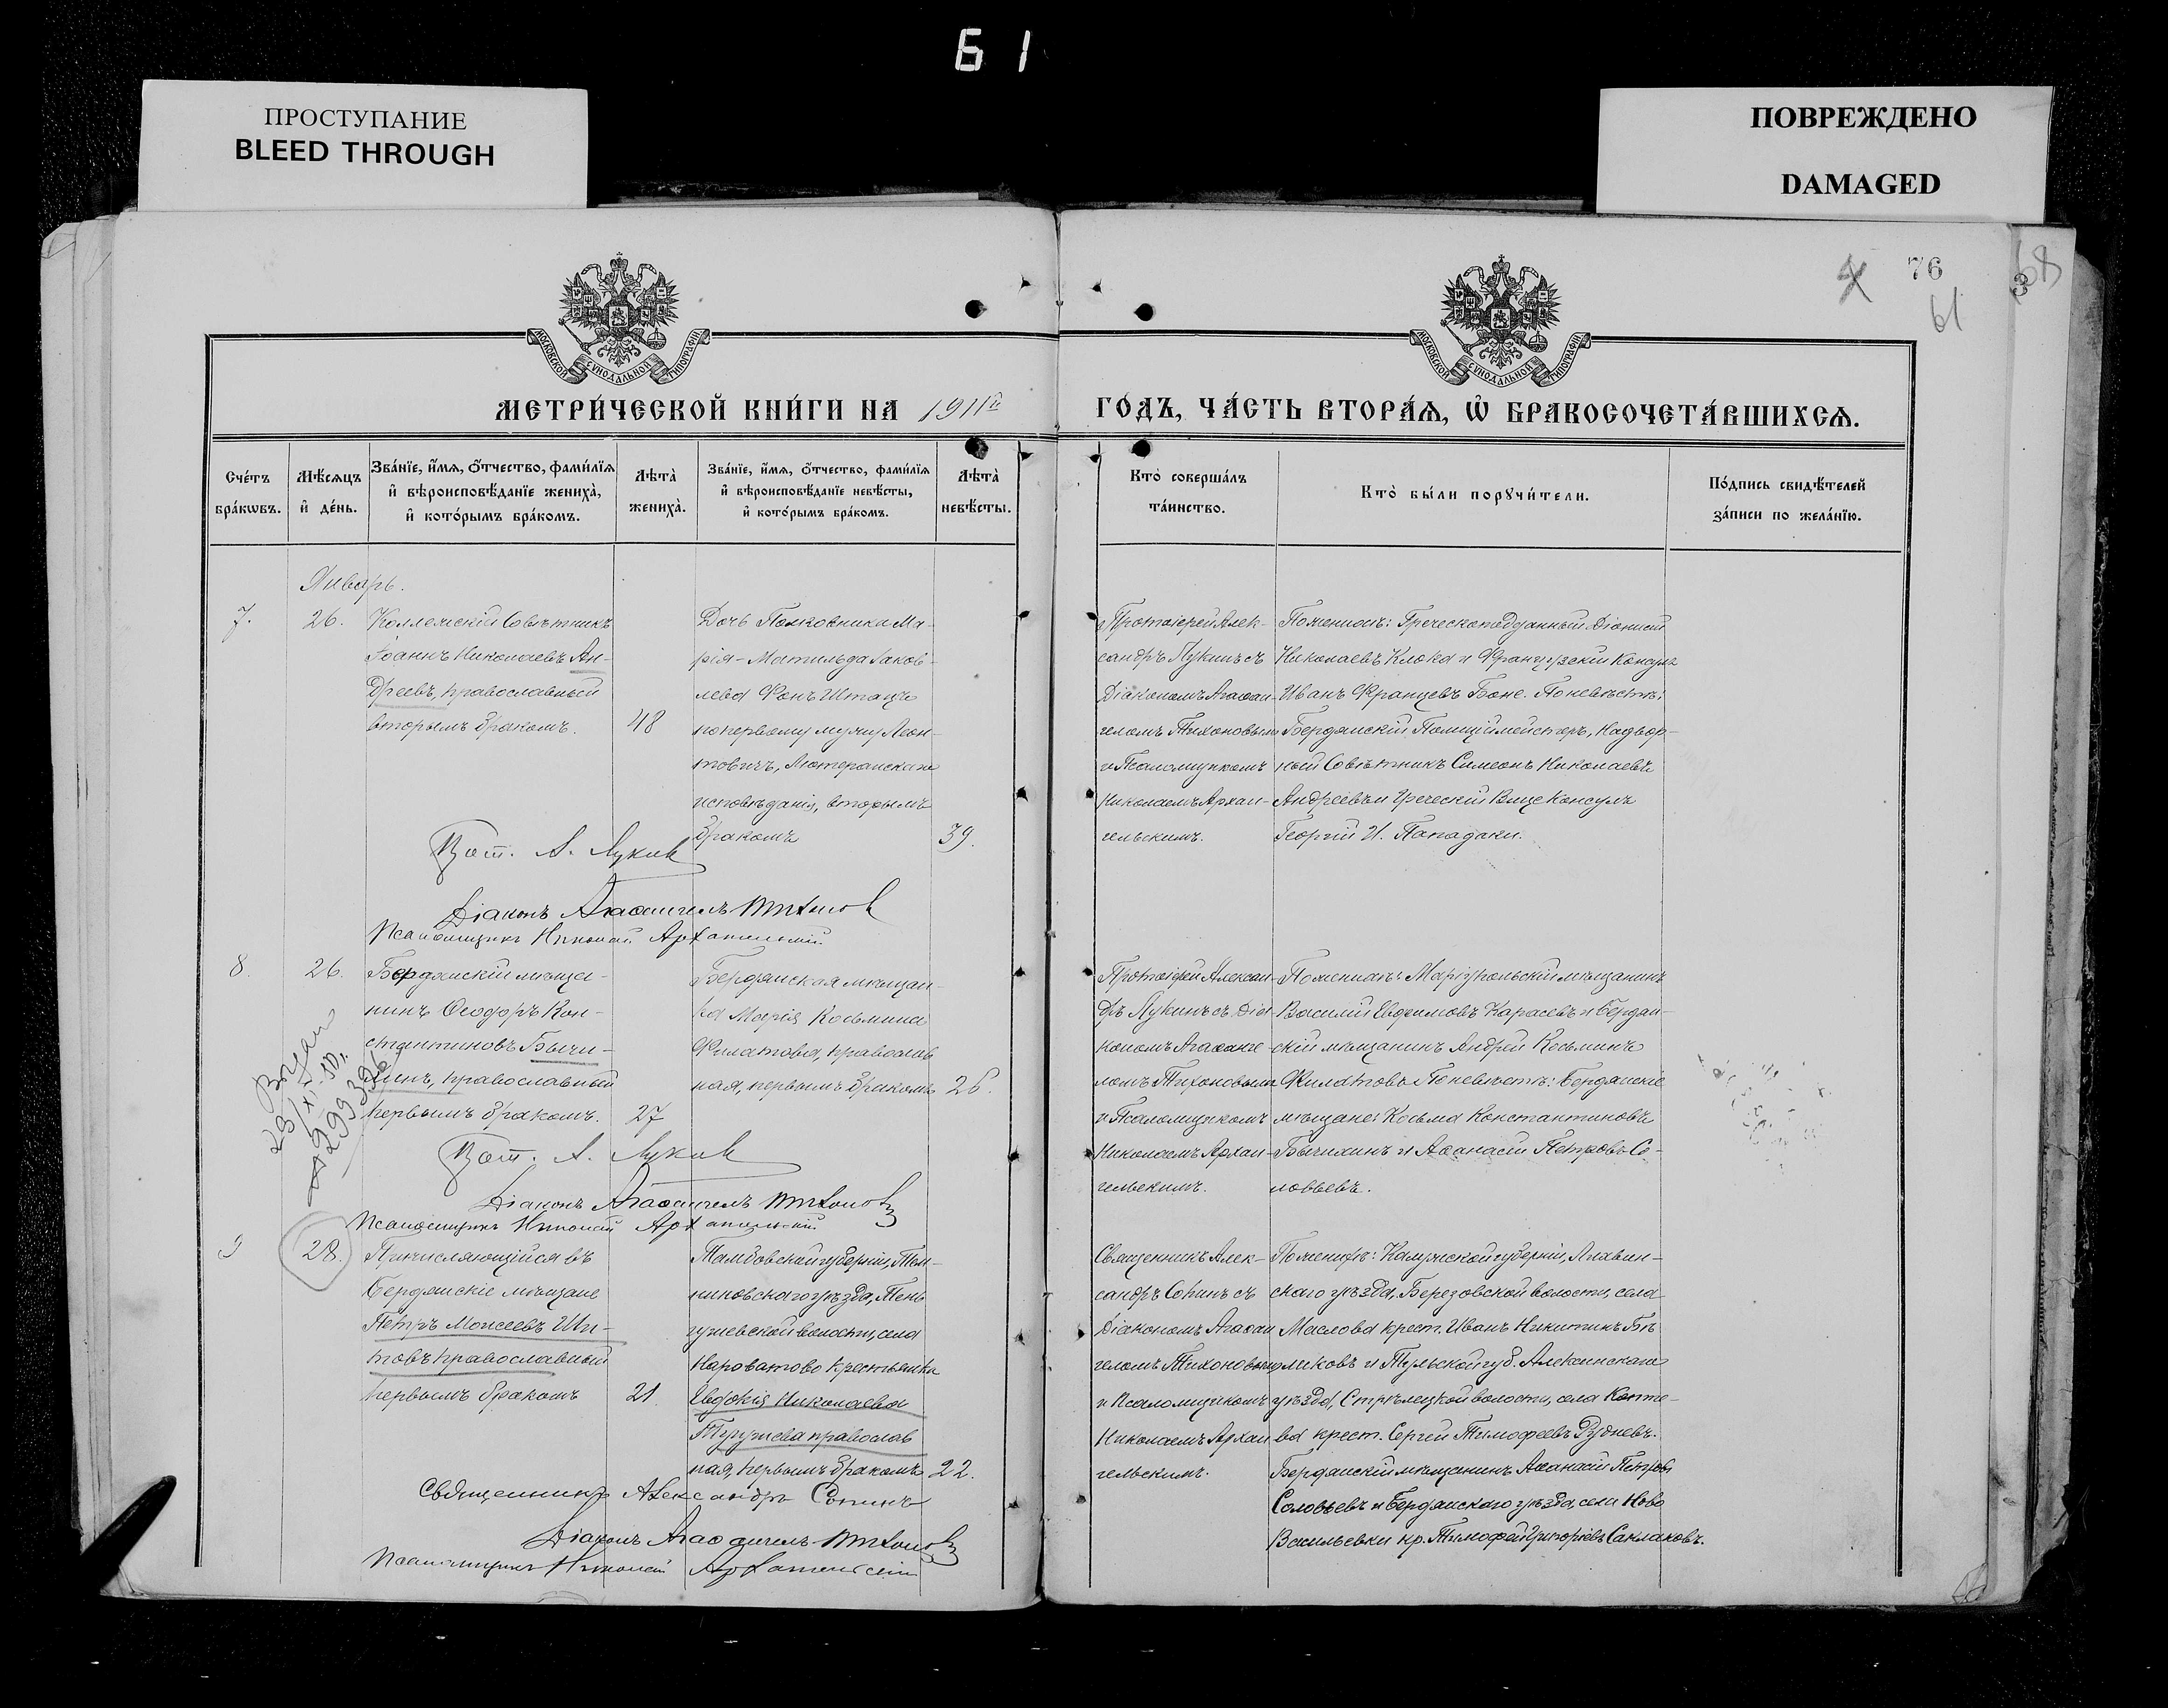 61
ПРОСТУПАНИЕ
BLEED THROUGH
ПОВРЕЖДЕНО
DAMAGED
76
61
68
3
МОСКОВСКОЙ СѴНОДАЛЬНОЙ ТИПОГРАФІИ
МОСКОВСКОЙ СѴНОДАЛЬНОЙ ТИПОГРАФІИ
МЕТРИ́ЧЕСКОЙ КНИ́ГИ НА 1911й
ГО́ДЪ, ЧА́СТЬ ВТОРА́Ѧ, Ѡ҆ БРАКОСОЧЕТА́ВШИХСѦ.
Сче́тъ бра́кѡвъ.
Мѣ́сѧцъ и҆ де́нь.
Зва́нїе, и҆́мѧ, ѻ҆́тчество, фами́лїѧ и҆ вѣроисповѣ́данїе жениха̀, и҆ кото́рымъ бра́комъ.
Лѣта̀ жениха̀.
Зва́нїе, и҆́мѧ, ѻ҆́тчество, фами́лїѧ и҆ вѣроисповѣ́данїе невѣ́сты, и҆ кото́рымъ бра́комъ.
Лѣта̀ невѣ́сты.
Кто̀ соверша́лъ та́инство.
Кто̀ бы́ли порꙋчи́тели.
По́дпись свидѣ́телей за́писи по жела́нїю.
Январь.
7.
26.
Коллежскій Совѣтникъ
Іоаннъ Николаевъ Ан-
дреевъ, православный
вторымъ бракомъ.
48
Дочь Полковника Ма-
рія-Матильда Іаков-
лева Фонъ Штацъ
по первому мужу Леон-
товичъ, Лютеранскаго
исповѣданія, вторымъ
бракомъ
39.
Протоіерей Алек-
сандръ Лукинъ съ
Діакономъ Агаѳан-
геломъ Тихоновымъ
и Псаломщикомъ
Николаемъ Архан-
гельскимъ.
По женихѣ: Греческоподданный Діонисій
Николаевъ Клока и Французскій Консулъ
Иванъ Францевъ Боне. По невѣстѣ:
Бердянскій Полиціймейстеръ, Надвор-
ный Совѣтникъ Симеонъ Николаевъ
Андреевъ и Греческій Вице Консулъ
Георгій И. Пападаки.
Прот. А. Лукинъ
Діаконъ Агаѳангелъ Тихоновъ
Псаломщикъ Николай Архангельскій
8.
26.
Бердянскій мѣща-
нинъ Ѳеодоръ Кон-
стантиновъ Бычи-
хинъ, православный
первымъ бракомъ.
27
Бердянская мѣщан-
ка Марія Косьмина
Филатова, православ
ная, первымъ бракомъ
26.
Протоіерей Алексан-
дръ Лукинъ съ Діа-
кономъ Агаѳанге-
ломъ Тихоновымъ
и Псаломщикомъ
Николаемъ Архан-
гельскимъ.
По женихѣ: Маріупольскій мѣщанинъ
Василій Евфимовъ Карасевъ и Бердян-
скій мѣщанинъ Андрей Косьминъ
Филатовъ По невѣстѣ: Бердянскіе
мѣщане: Косьма Константиновъ
Бычихинъ и Аѳанасій Петровъ Со-
ловьевъ.
Выдан
Прот. А. Лукинъ
Діаконъ Агаѳангелъ Тихоновъ
Псаломщикъ Николай Архангельскій
9
28.
Причисляющійся въ
Бердянскіе мѣщане
Петръ Моисеевъ Ши-
товъ православный
первымъ бракомъ
21.
Тамбовской губерніи, Тем-
никовскаго уѣзда, Тень
гушевской волости, села
Нароватово крестьянка
Евдокія Николаева
православ
ная, первымъ бракомъ
22.
Священникъ Алек-
сандръ Сонинъ съ
Діакономъ Агаѳан
геломъ Тихоновымъ
и Псаломщикомъ
Николаемъ Архан
гельскимъ.
По женихѣ: Калужской губерніи, Лихвин-
скаго уѣзда, Березовской волости, села
Маслова крест. Иванъ Никитинъ Бѣ
ликовъ и Тульской губ. Алексинскаго
уѣзда, Стрѣлецкой волости, села Копте-
ва крест. Сергей Тимофеевъ Рудневъ.
Бердянскій мѣщанинъ Аѳанасій Петровъ
Соловьевъ и Бердянскаго уѣзда, села Ново
Васильевки кр. Тимофей Григоріевъ Саклаковъ.
Священникъ Александръ Сонинъ
Діаконъ Агаѳангелъ Тихоновъ
Псаломщикъ Николай Архангельскій